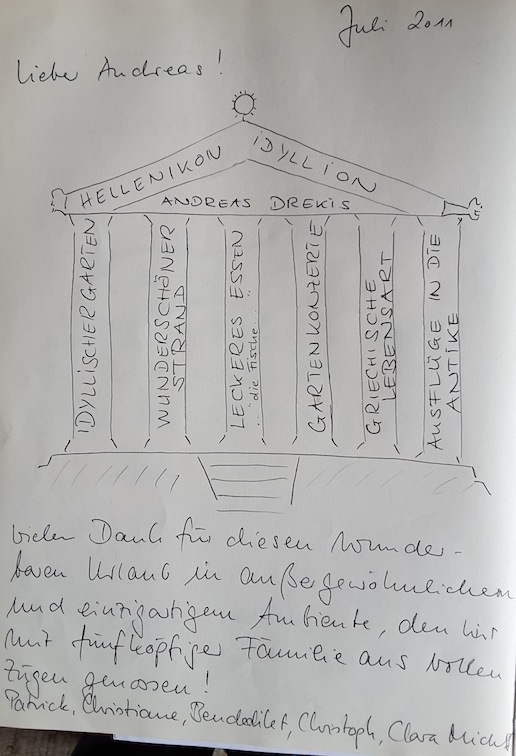 Juli 2011
Lieber Andreas!
HELLENIKON IDYLLION
ANDREAS DREKIS
IDYLLISCHER GARTEN
WUNDERSCHÖNER
STRAND
LECKERES ESSEN
... "die Fische..."
GARTENKONZERTE
GRIECHISCHE
LEBENSART
AUSFLÜGE IN DIE
ANTIKE
vielen Dank für diesen wunder-
baren Urlaub in außergewöhnlichem
und einzigartigem Ambiente, den wir
mit fünfköpfiger Familie aus vollen
Zügen genossen!
Patrick, Christiane, Benedikt, Christoph, Clara